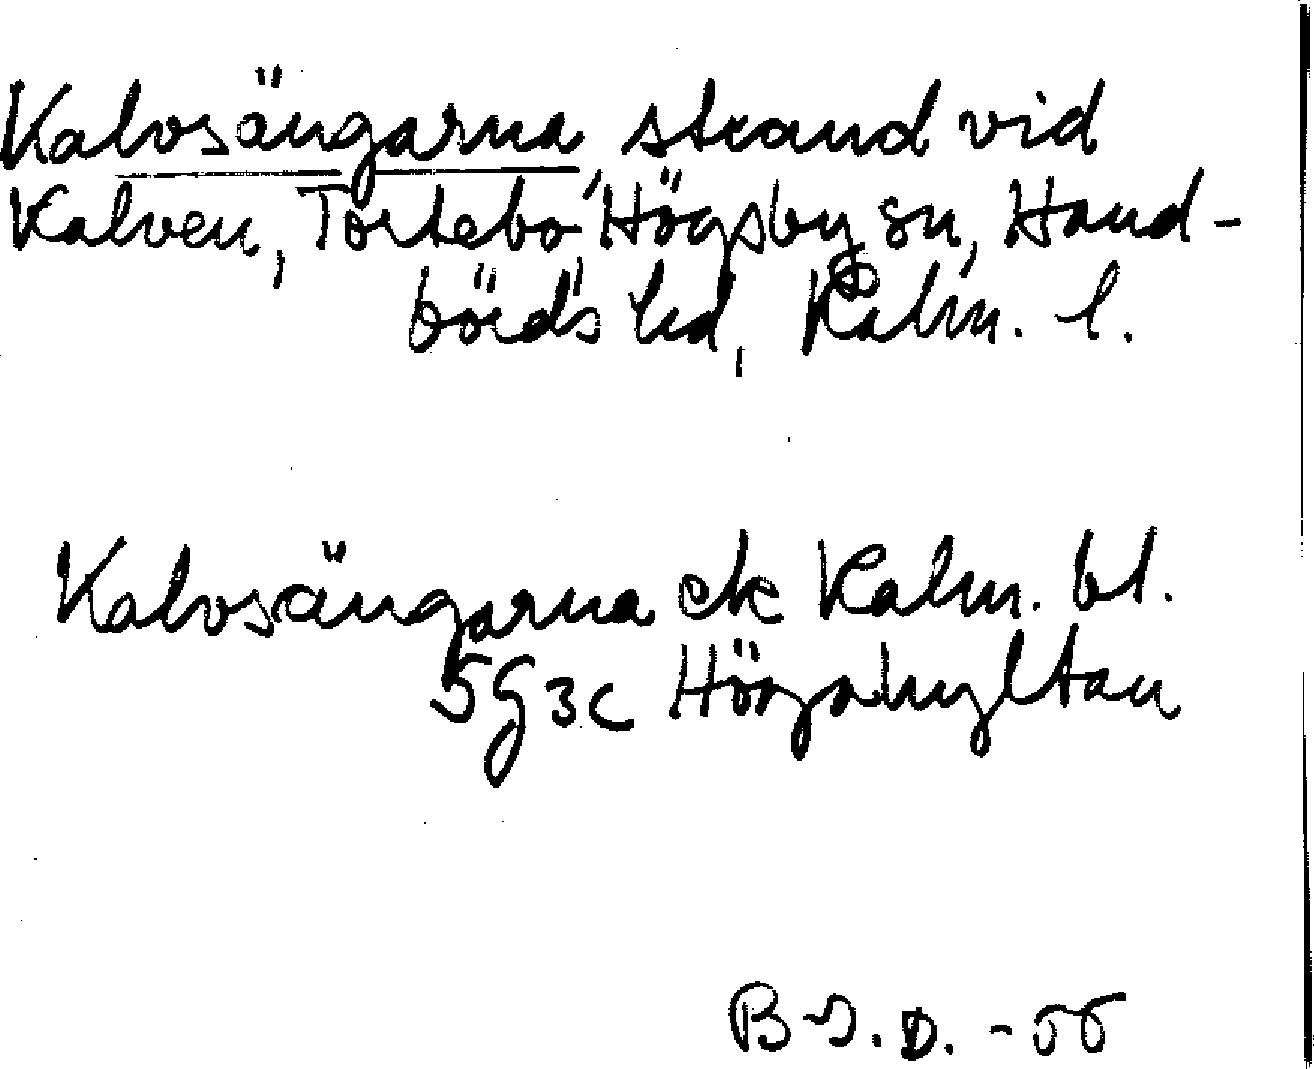 Kalvsängarna, strand vid
Kalven, Tortebo, Högsby sn, Hand-
börds hd, Kalm. l.
Kalvsängarna ek Kalm. bl.
5G3c Högahyltan
B-I.D. -55